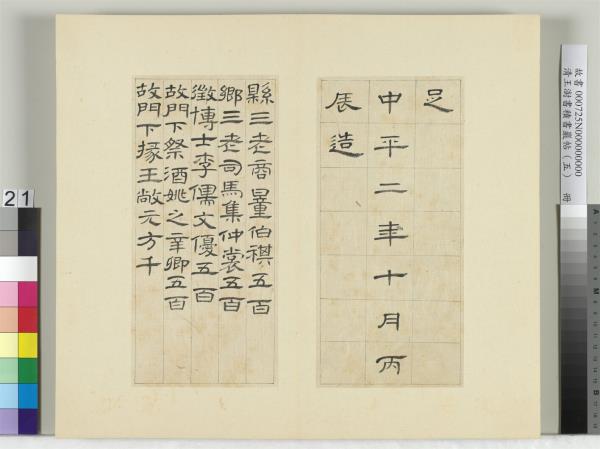 足
中平二年十月丙
辰造
縣三老商量伯祺五百
鄉三老司馬集仲裳五百
徵博士李儒文優五百
故門下祭酒姚之辛卿五百
故門下掾王敞元方千
故書 000725N000000000
清王澍書積書巖帖（五） 冊
21